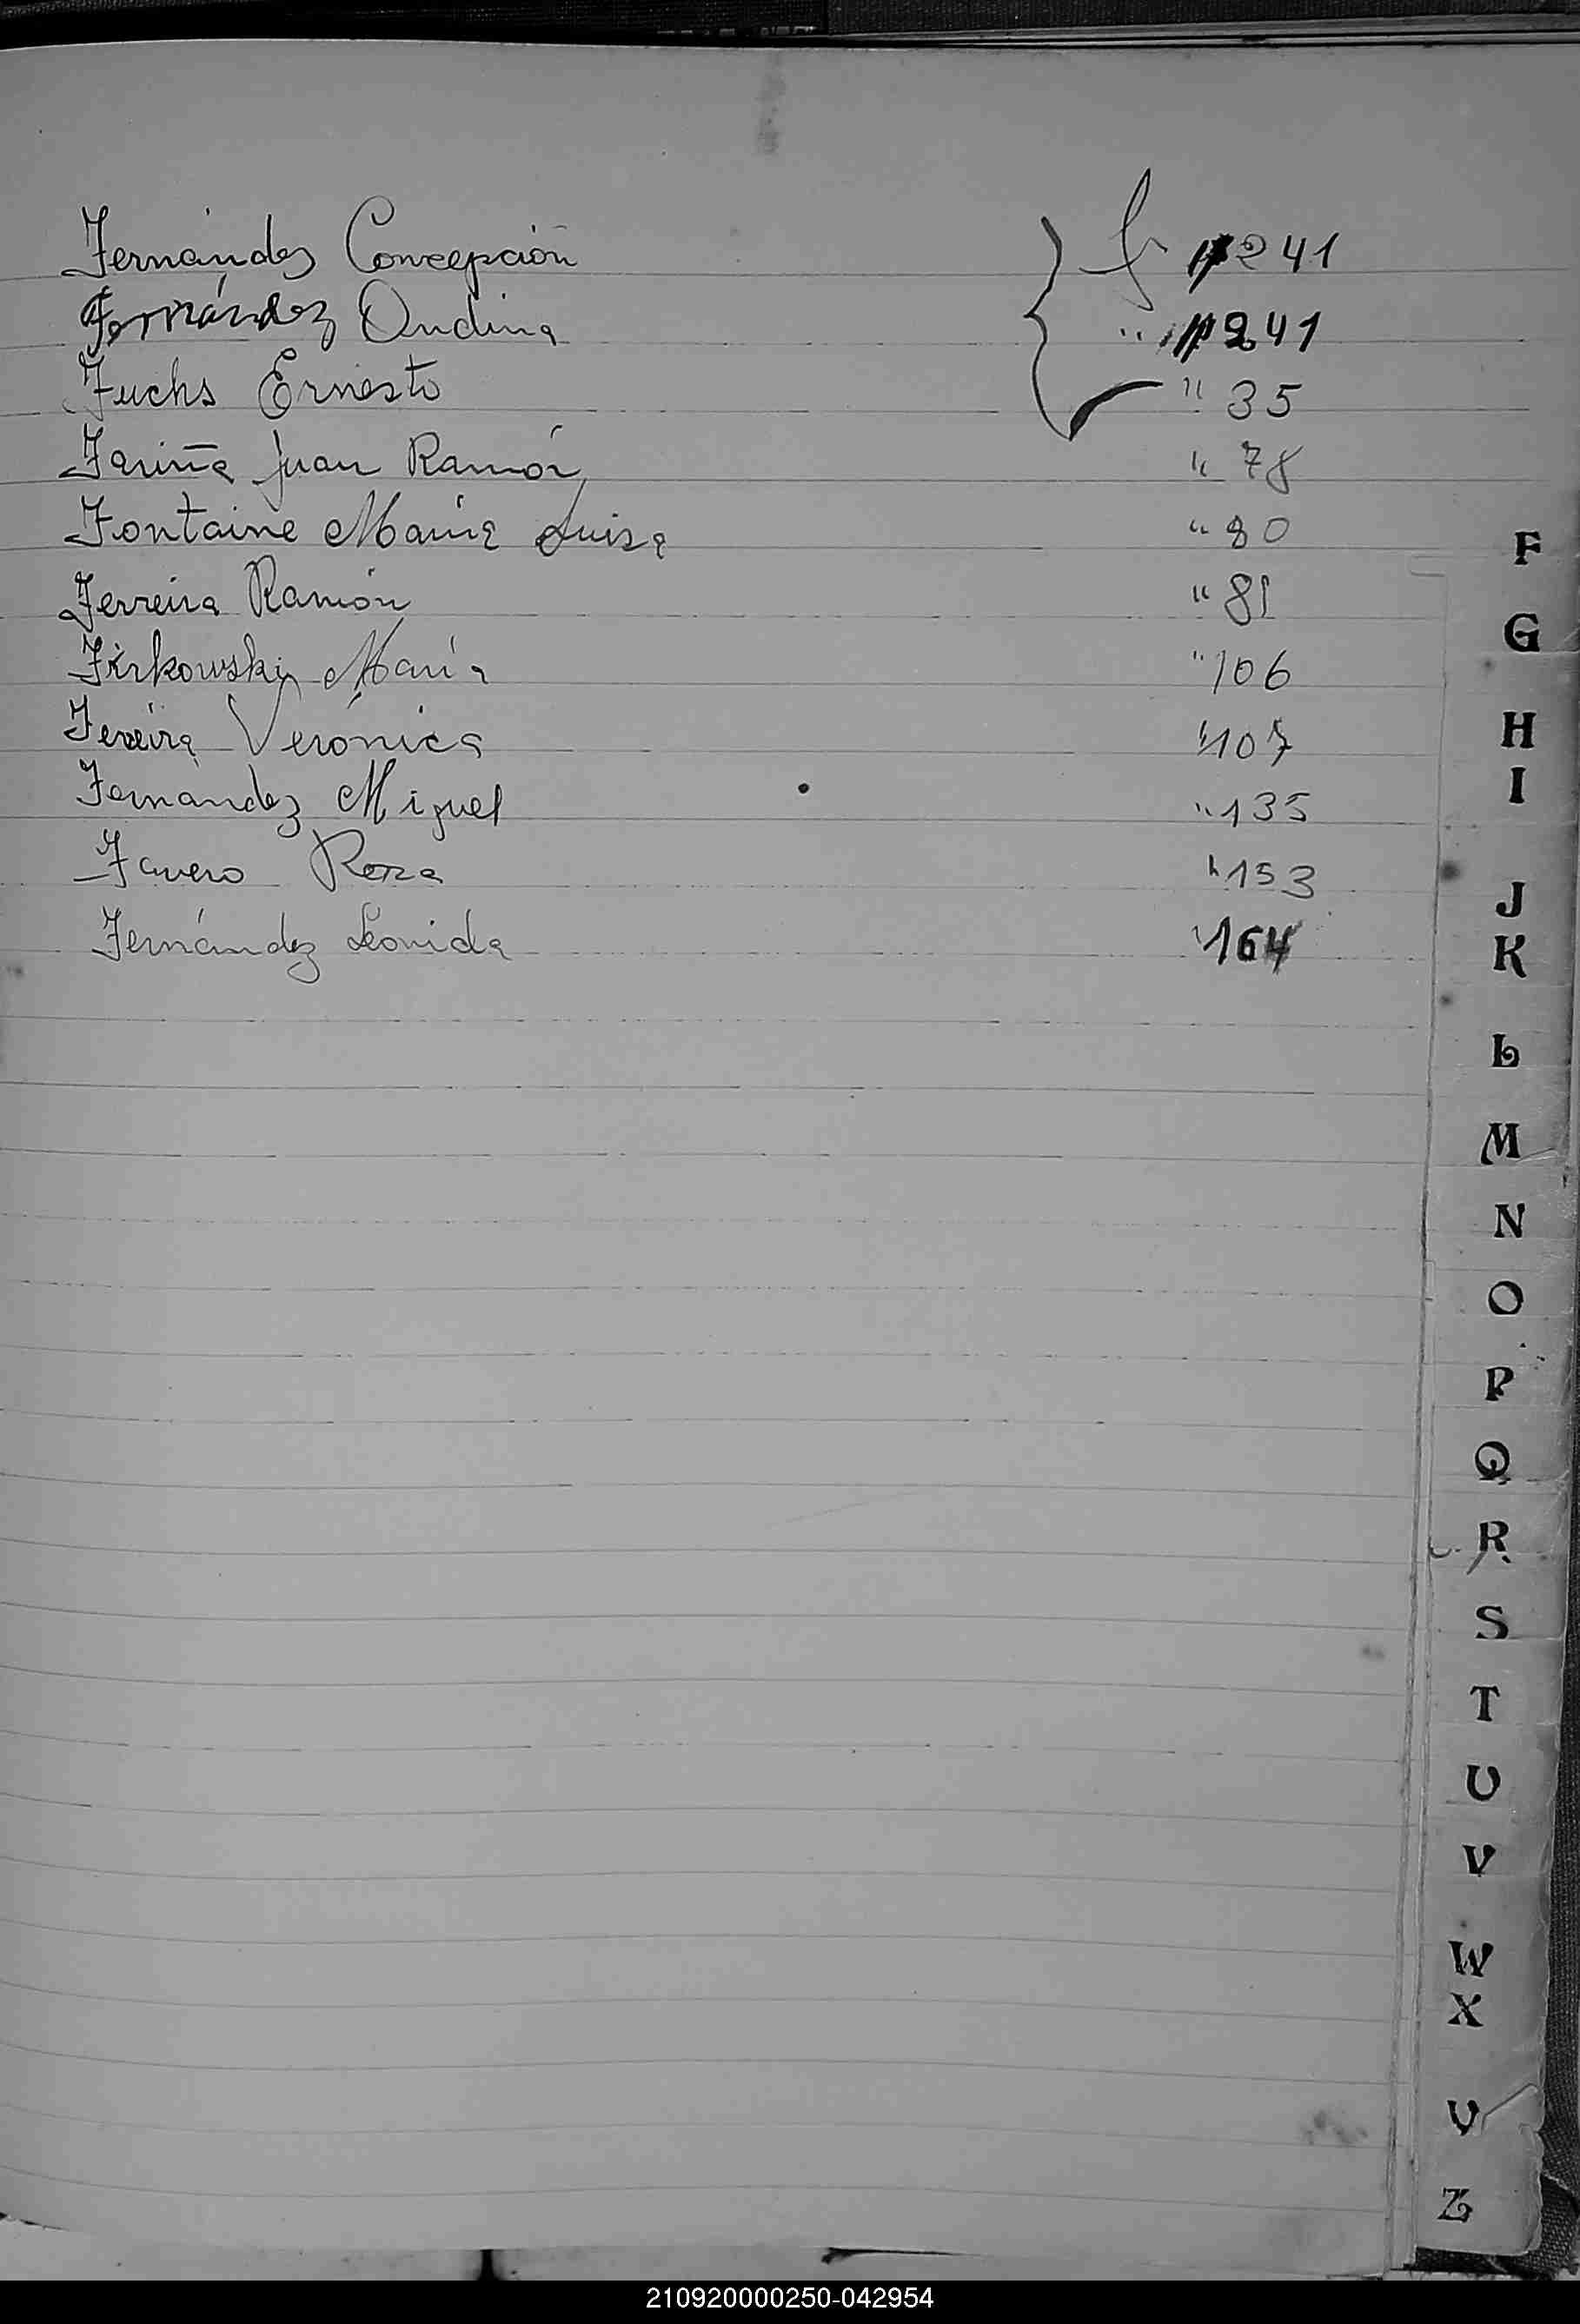 Fernández Concepción f 241
Fernández Ondina " 241
Fuchs Ernesto " 35
Fariña Juan Ramón " 78
Fontaine María Luisa " 80
Ferreira Ramón " 81
Firkowski María " 106
Fereira Verónica " 107
Fernández Miguel " 135
Favero Rosa " 153
Fernández Leonida " 164
F
G
H
I
J
K
L
M
N
O
P
Q
R
S
T
U
V
W
X
Y
Z
210920000250-042954